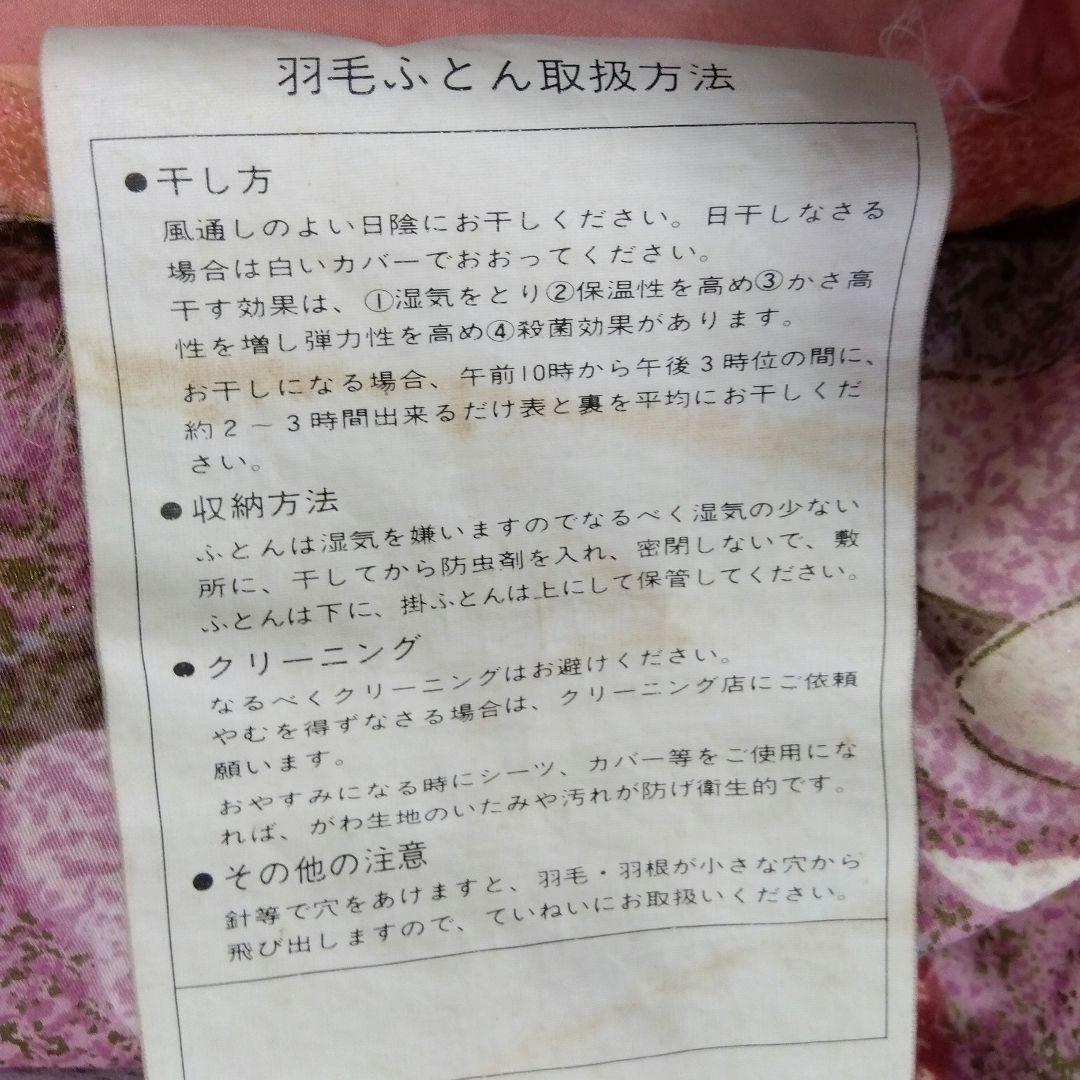 羽毛ふとん取扱方法
●干し方
風通しのよい日陰にお干しください。日干しなさる
場合は白いカバーでおおってください。
干す効果は、①湿気をとり②保温性を高め③かさ高
性を増し弾力性を高め④殺菌効果があります。
お干しになる場合、午前10時から午後3時位の間に、
約2～3時間出来るだけ表と裏を平均にお干しくだ
さい。
●収納方法
ふとんは湿気を嫌いますのでなるべく湿気の少ない
所に、干してから防虫剤を入れ、密閉しないで、敷
ふとんは下に、掛ふとんは上にして保管してください。
●クリーニング
なるべくクリーニングはお避けください。
やむを得ずなさる場合は、クリーニング店にご依頼
願います。
おやすみになる時にシーツ、カバー等をご使用にな
れば、がわ生地のいたみや汚れが防げ衛生的です。
●その他の注意
針等で穴をあけますと、羽毛・羽根が小さな穴から
飛び出しますので、ていねいにお取扱いください。